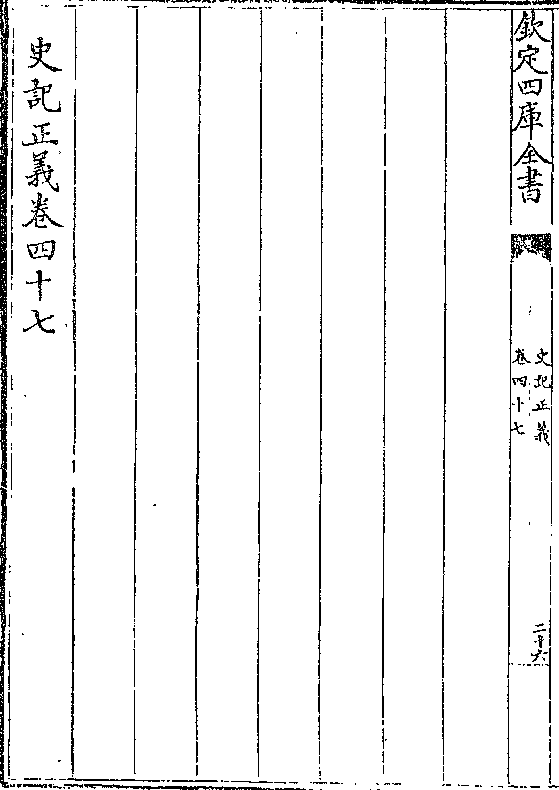 欽定四庫全書
史記正義
卷四十七
二十六
史記正義卷四十七